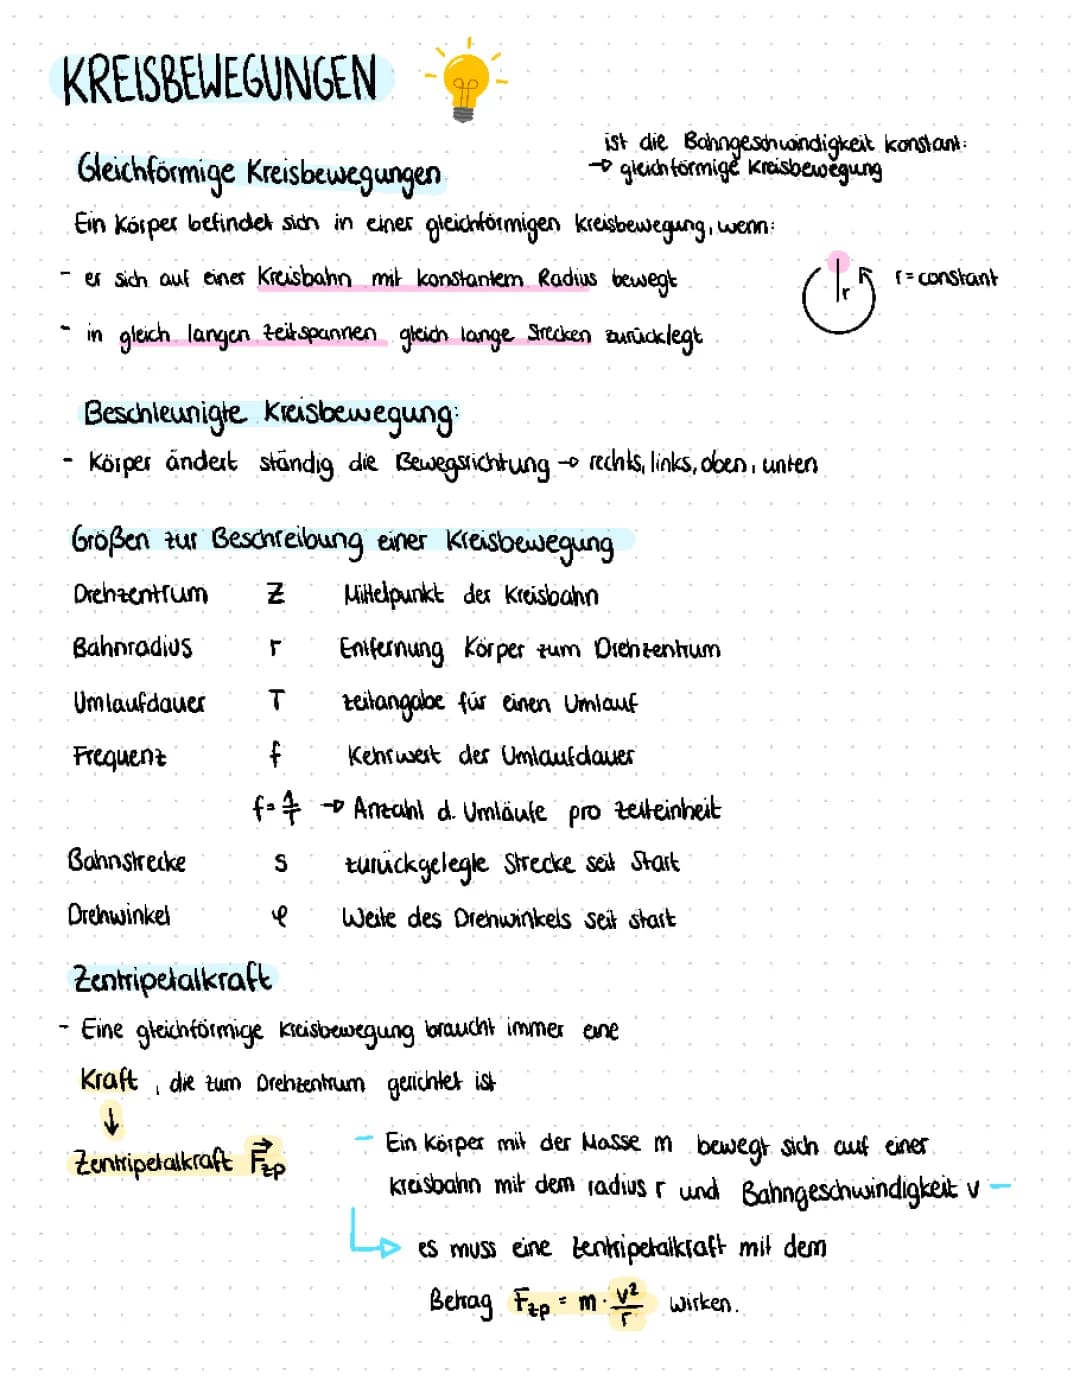 KREISBEWEGUNGEN
ist die Bahngeschwindigkeit konstant:
→ gleichförmige Kreisbewegung
Gleichförmige Kreisbewegungen
Ein Körper befindet sich in einer gleichförmigen Kreisbewegung, wenn:
- er sich auf einer Kreisbahn mit konstantem Radius bewegt
r
r = constant
- in gleich langen Zeitspannen gleich lange Strecken zurücklegt
Beschleunigte Kreisbewegung:
- Körper ändert ständig die Bewegsrichtung → rechts, links, oben, unten
Größen zur Beschreibung einer Kreisbewegung
Drehzentrum Z Mittelpunkt der Kreisbahn
Bahnradius r Entfernung Körper zum Drehzentrum
Umlaufdauer T Zeitangabe für einen Umlauf
Frequenz f Kehrwert der Umlaufdauer
f = 1/T → Anzahl d. Umläufe pro Zeiteinheit
Bahnstrecke s zurückgelegte Strecke seit Start
Drehwinkel φ Weite des Drehwinkels seit start
Zentripetalkraft
- Eine gleichförmige Kreisbewegung braucht immer eine
Kraft, die zum Drehzentrum gerichtet ist
↓
Zentripetalkraft F⃗zp
- Ein Körper mit der Masse m bewegt sich auf einer
kreisbahn mit dem radius r und Bahngeschwindigkeit v -
es muss eine Zentripetalkraft mit dem
Betrag Fzp = m · v²/r wirken.